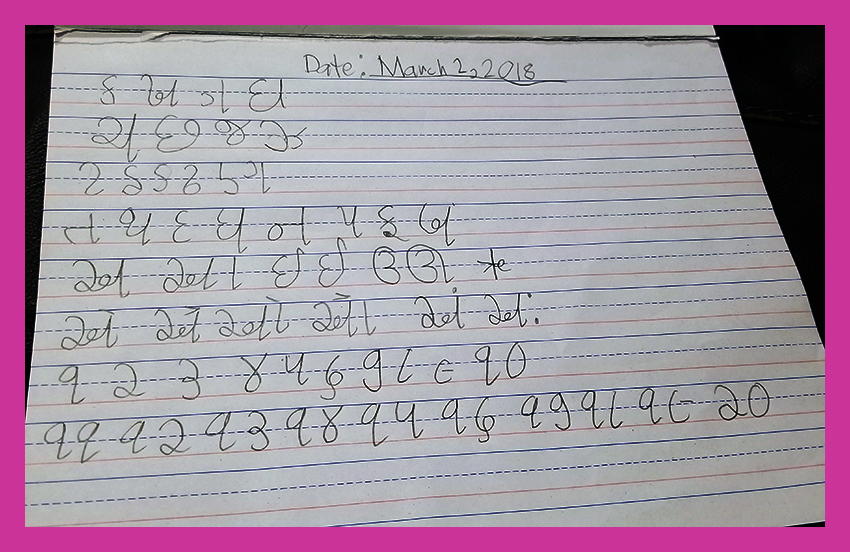 Date: March 2, 2018
ક ખ ગ ઘ
ચ છ જ ઝ
ટ ઠ ડ ઢ ણ
ત થ દ ધ ન પ ફ બ
અ આ ઇ ઈ ઉ ઊ ઋ
એ ઐ ઓ ઔ અં અઃ
૧ ૨ ૩ ૪ ૫ ૬ ૭ ૮ ૯ ૧૦
૧૧ ૧૨ ૧૩ ૧૪ ૧૫ ૧૬ ૧૭ ૧૮ ૧૯ ૨૦